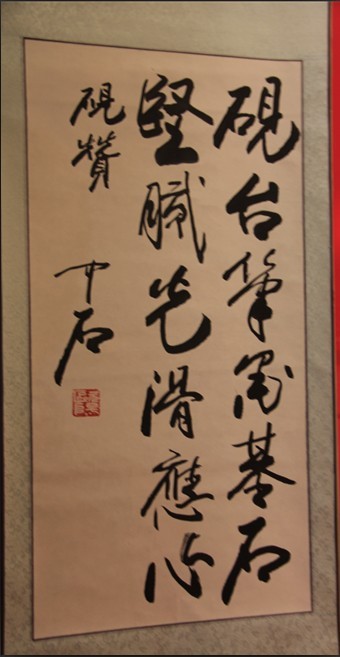 硯台筆墨基石
堅膩光滑應心
硯贊
中石